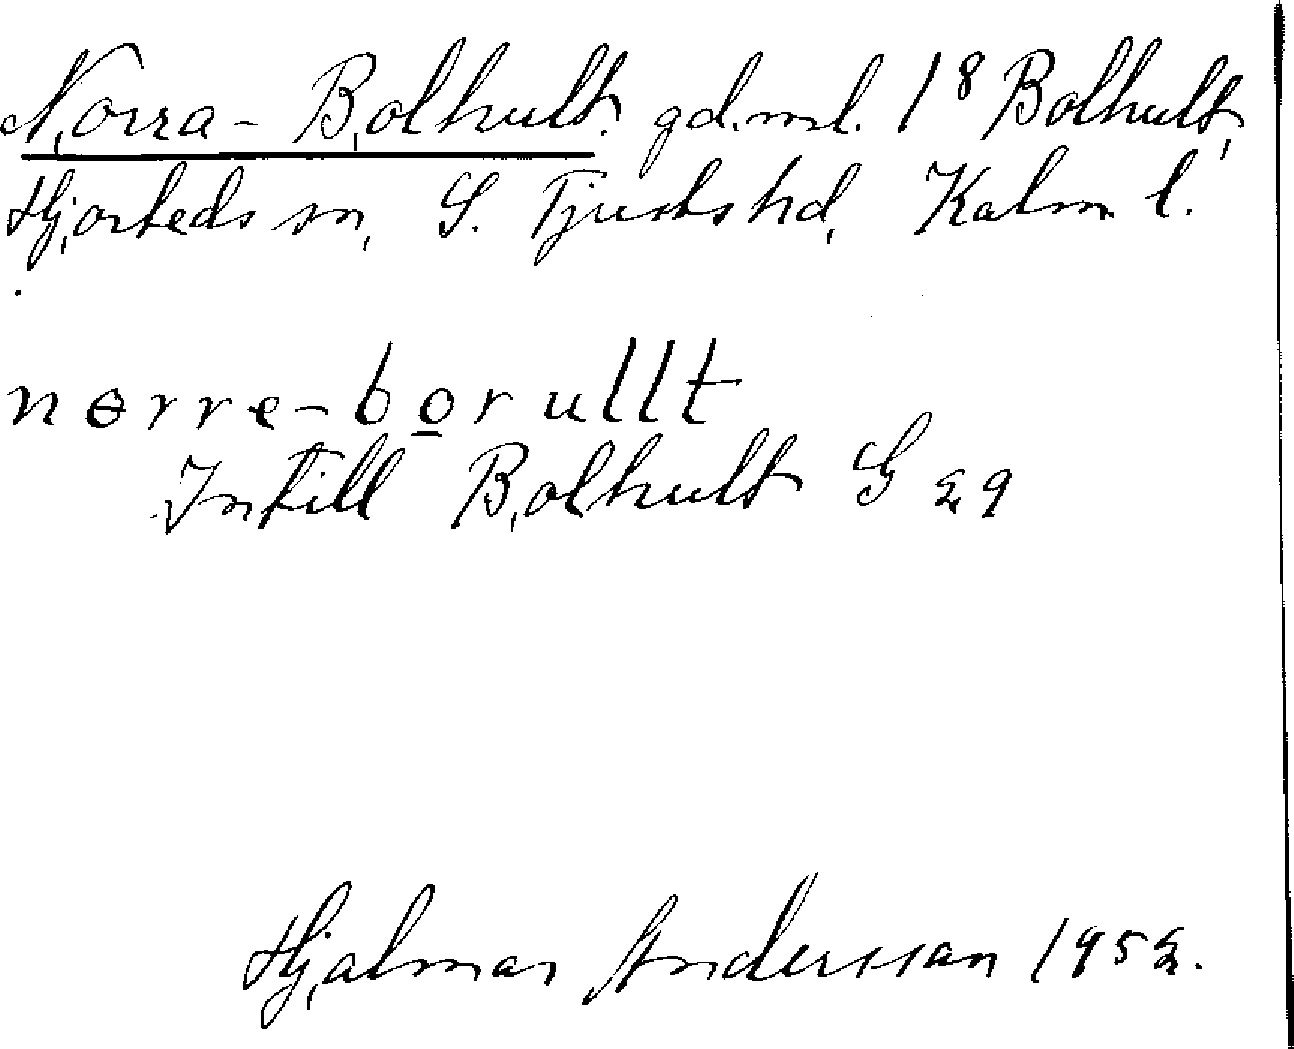 Norra-Bolhult. gd.ml. 1⁸ Bolhult,
Hjorteds sn, S. Tjusts hd, Kalm l.
nɵrre-bo̲rullt
Intill Bolhult G 29
Hjalmar Andersson 1952.